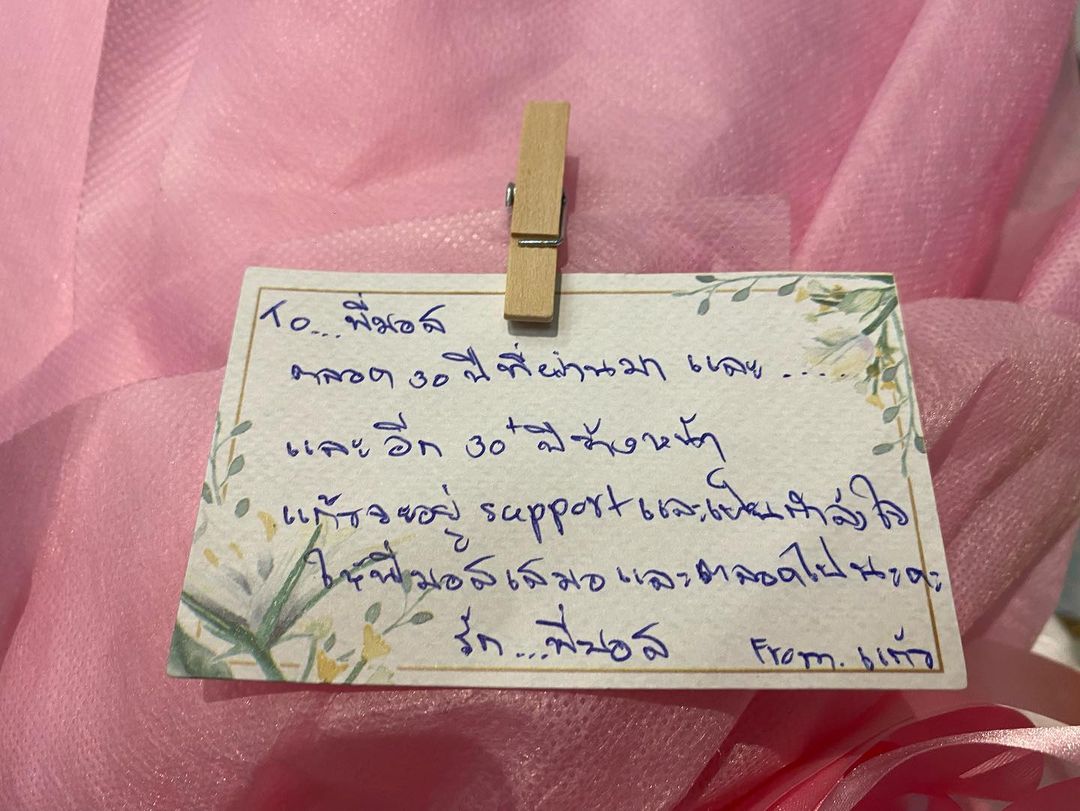 To...พี่มอส
ตลอด 30 ปีที่ผ่านมา และ.....
และอีก 30+ ปีข้างหน้า
แก้วจะอยู่ support และเป็นกำลังใจ
ให้พี่มอสเสมอและตลอดไปนะคะ
รัก...พี่มอส From. แก้ว